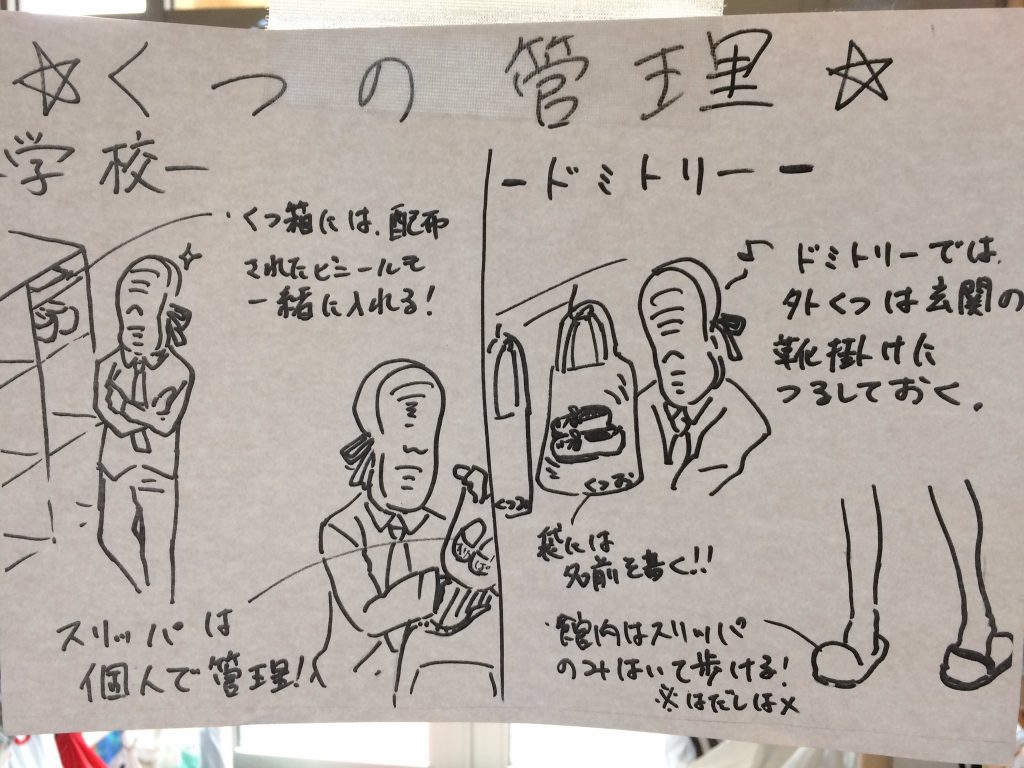 ☆くつの管理☆
学校ー
・くつ箱には、配布
されたビニールも
一緒に入れる！
スリッパは
個人で管理！
ードミトリーー
♪ ドミトリーでは、
外くつは玄関の
靴掛けに
つるしておく。
くつお
くつお
袋には
名前を書く!!
・館内はスリッパ
のみはいて歩ける！
※はだしは×